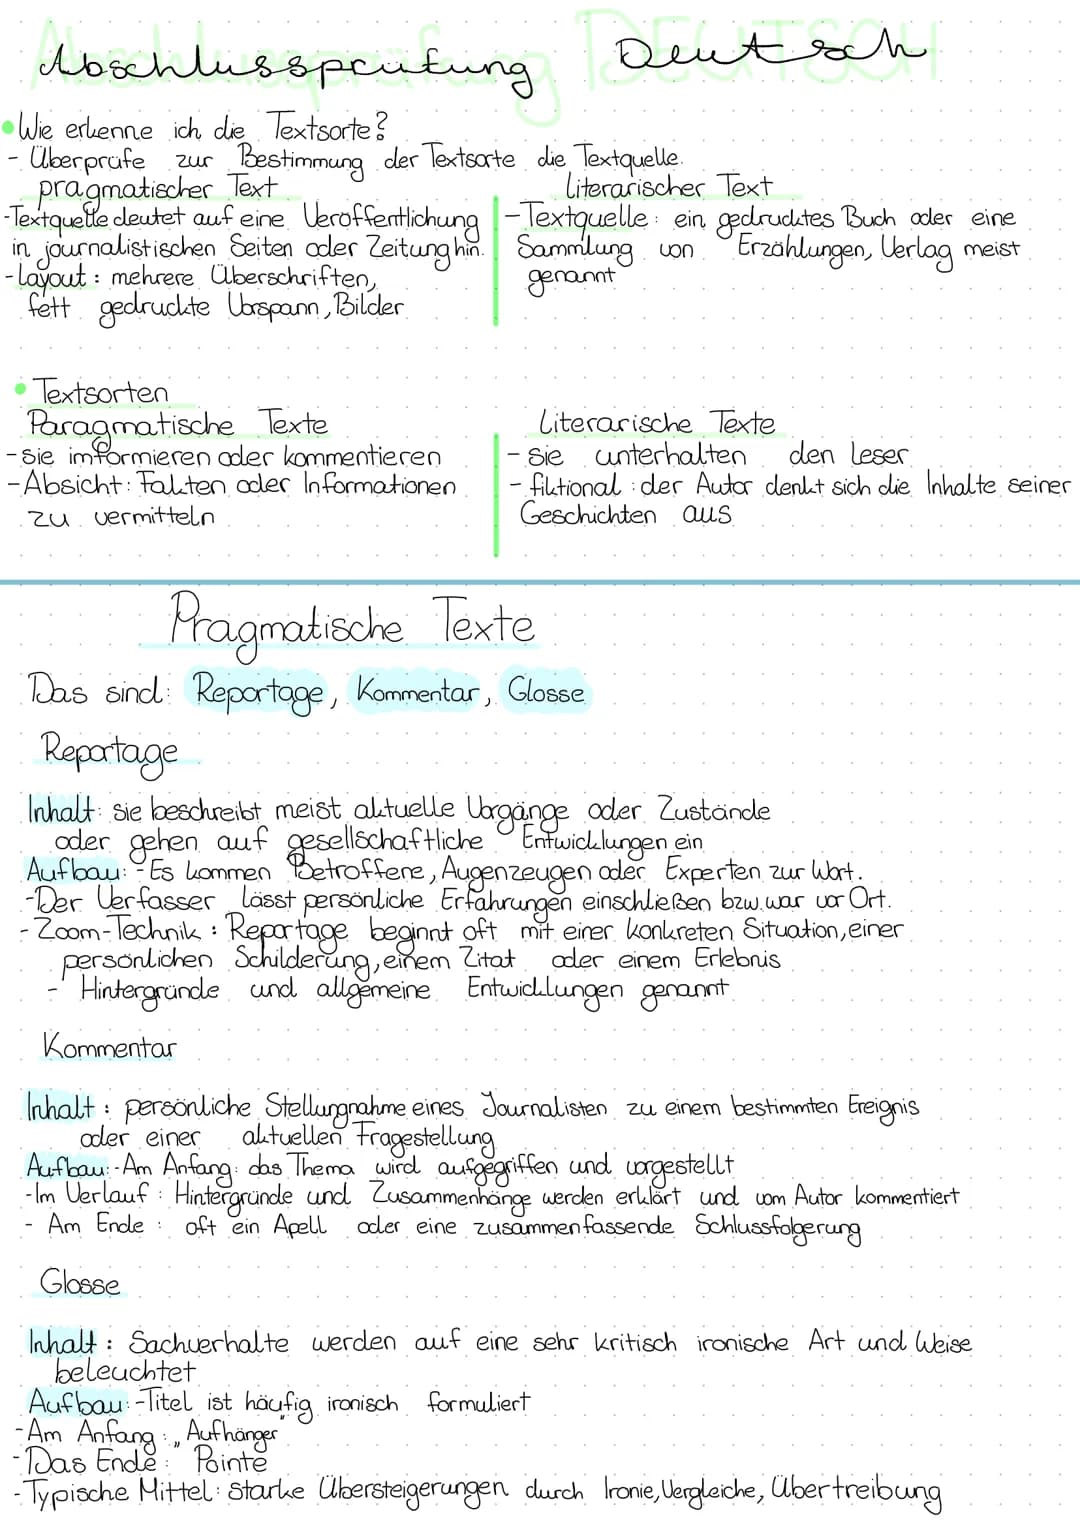 Abschlussprüfung Deutsch
• Wie erkenne ich die Textsorte?
- Überprüfe zur Bestimmung der Textsorte die Textquelle.
pragmatischer Text
- Textquelle deutet auf eine Veröffentlichung
in journalistischen Seiten oder Zeitung hin.
- Layout: mehrere Überschriften,
fett gedruckte Vorspann, Bilder
literarischer Text
- Textquelle: ein gedrucktes Buch oder eine
Sammlung von Erzählungen, Verlag meist
genannt
• Textsorten
Paragmatische Texte
- sie imformieren oder kommentieren
- Absicht: Fakten oder Informationen
zu vermitteln
Literarische Texte
- sie unterhalten den leser
- fiktional: der Autor denkt sich die Inhalte seiner
Geschichten aus
Pragmatische Texte
Das sind: Reportage, Kommentar, Glosse
Reportage
Inhalt: sie beschreibt meist aktuelle Vorgänge oder Zustände
oder gehen auf gesellschaftliche Entwicklungen ein
Aufbau: - Es kommen Betroffene, Augenzeugen oder Experten zur Wort.
- Der Verfasser lässt persönliche Erfahrungen einschließen bzw. war vor Ort.
- Zoom-Technik: Reportage beginnt oft mit einer konkreten Situation, einer
persönlichen Schilderung, einem Zitat oder einem Erlebnis
- Hintergründe und allgemeine Entwicklungen genannt
Kommentar
Inhalt: persönliche Stellungnahme eines Journalisten zu einem bestimmten Ereignis
oder einer aktuellen Fragestellung
Aufbau: - Am Anfang: das Thema wird aufgegriffen und vorgestellt
- Im Verlauf: Hintergründe und Zusammenhänge werden erklärt und vom Autor kommentiert
- Am Ende: oft ein Apell oder eine zusammenfassende Schlussfolgerung
Glosse
Inhalt: Sachverhalte werden auf eine sehr kritisch ironische Art und Weise
beleuchtet
Aufbau: - Titel ist häufig ironisch formuliert
- Am Anfang: „Aufhänger"
- Das Ende: Pointe
- Typische Mittel: starke Übersteigerungen durch Ironie, Vergleiche, Übertreibung